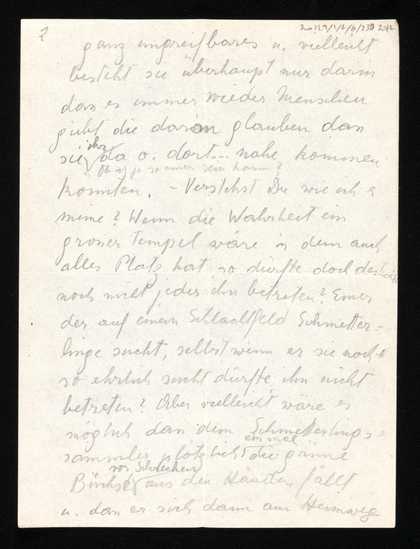 ?
ganz ungreifbares u. vielleicht
besteht sie überhaupt nur darin
dass es immer wieder Menschen
gibt die daran glauben dass
sie ihr da o. dort... nahe kommen
könnten. – Verstehst Du wie ich's
meine? Wenn die Wahrheit ein
grosser Tempel wäre in dem auch
alles Platz hat so dürfte doch
noch nicht jeder ihn betreten? Einer
der auf einem Schlachtfeld Schmetter-
linge sucht, selbst wenn er sie noch
so ehrlich sucht dürfte ihn nicht
betreten? Aber vielleicht wäre es
möglich dass dem Schmetterlings-
sammler plötzlich einmal die grüne
Büchse vor Schrecken aus den Händen fällt
u. dass er sich dann am Heimweg